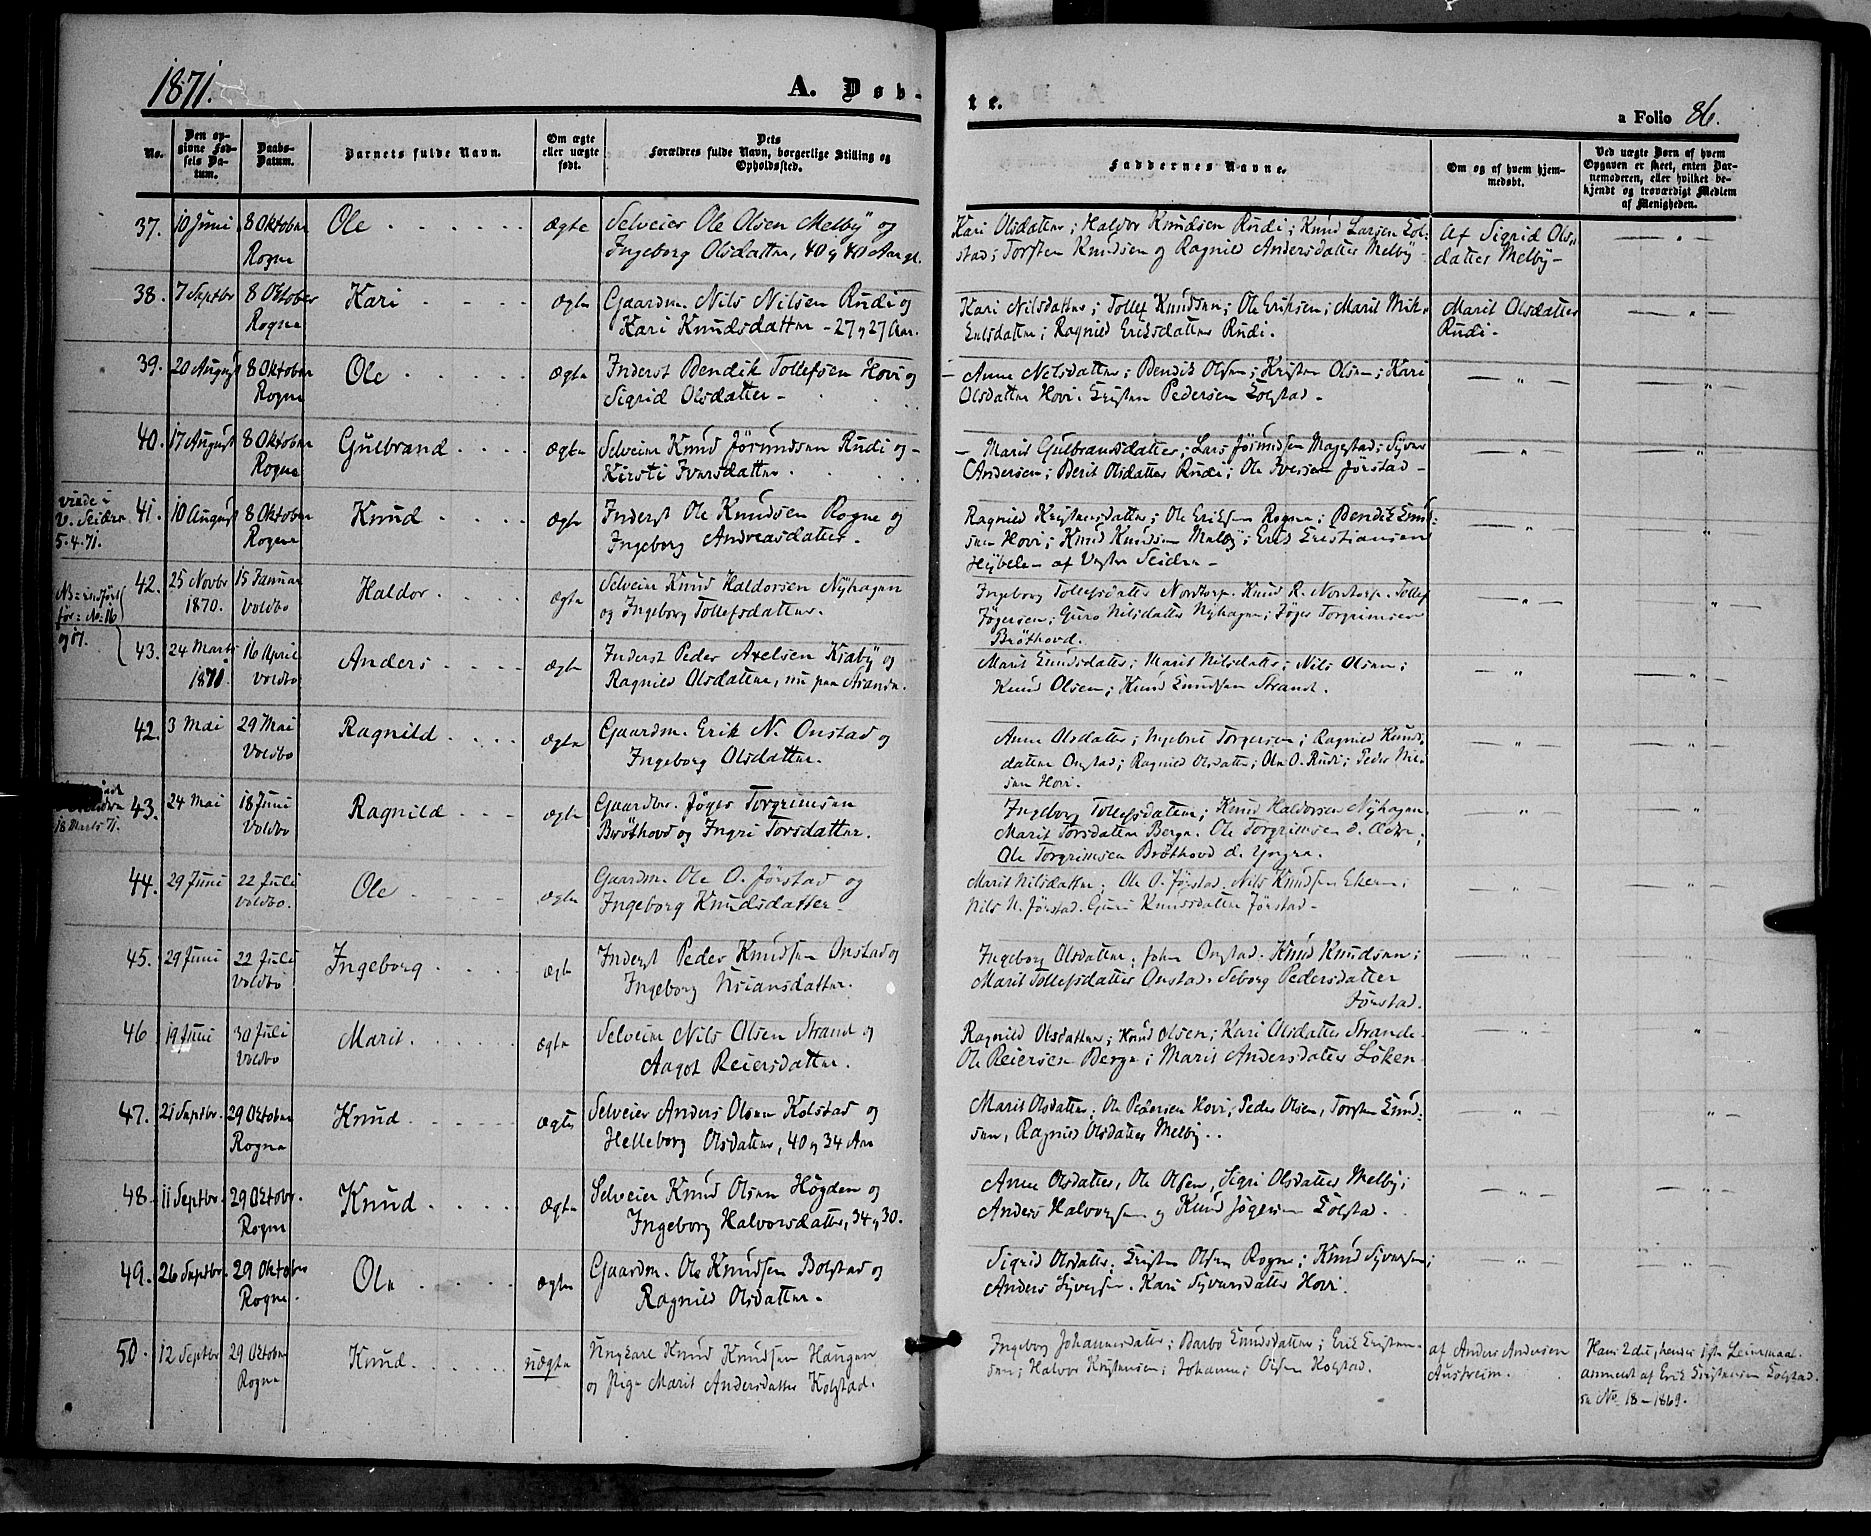 1871.
A. Døb-
te.
a Folio 86.
No.
Den op-
givne Fød-
sels Da-
tum.
Daabs-
Datum.
Barnets fulde Navn.
Om ægte
eller uægte
født.
Dets
Forældres fulde Navn, borgerlige Stilling og
Opholdssted.
Faddernes Navne.
Om og af hvem hjem-
medøbt.
Ved uægte Børn af hvem
Opgaven er skeet, enten Bar-
nemoderen, eller hvilket be-
kjendt og troværdigt Medlem
af Menigheden.
37. 10 Juni 8 Oktober Ole ægte Selveier Ole Olsen Melbÿ og
Rogne Ingeborg Olsdatter, 40 og 40 Aar gl.
Kari Olsdatter; Haldor Knudsen Rudi; Knud Larsen Kol-
stad; Torsten Knudsen og Ragnild Andersdatter Melby
Af Sigrid Ols-
datter Melby
38. 7 Septbr 8 Oktober Kari ægte Gaardm. Nils Nilsen Rudi og
Rogne Kari Knudsdatter - 27 og 27 Aar.
Kari Nilsdatter; Tollef Knudsen; Ole Eriksen; Marit Mik-
kelsdatter; Ragnild Eriksdatter Rudi.
Marit Olsdatter
Rudi -
39. 20 August 8 Oktober Ole ægte Inderst Bendik Tollefsen Hovi og
Rogne Sigrid Olsdatter -
Anne Nilsdatter; Bendik Olsen; Kristen Olsen; Kari
Olsdatter Hovi. Kristen Pedersen Kolstad -
40. 17 August 8 Oktober Gulbrand ægte Selveier Knud Jørundsen Rudi og
Rogne Kirsti Iversdatter.
Marit Gulbransdatter; Lars Jørundsen Magistad; Syver
Andersen; Berit Olsdatter Rudi; Ole Iversen Jørstad -
V. Seidre
5.4.71.
41. 10 August 8 Oktober Knud ægte Inderst Ole Knudsen Rogne og
Rogne Ingeborg Andreasdatter.
Ragnild Kristensdatter; Ole Eriksen Rogne; Bendik Knud-
sen Hovi; Knud Knudsen Melby; Erik Kristiansen
af Vestre Seidre -
No 16
og 17.
42. 25 Novbr 15 Januar Haldor ægte Selveier Knud Haldorsen Nÿhagen
1870. Voldbo og Ingeborg Tollefsdatter.
Ingeborg Tollefsdatter Nordtorp. Knud R. Nordtorp. Tollef
Jøgersen; Guro Nilsdatter Nyhagen; Jøger Torgrimsen
Brøthovd.
43. 24 Marts 16 April Anders ægte Inderst Peder Axelsen Kvaby og
1871. Voldbo Ragnild Olsdatter, nu paa Strande.
Marit Knudsdatter; Marit Nilsdatter; Nils Olsen;
Knud Olsen; Knud Knudsen Strand.
42. 3 Mai 29 Mai Ragnild ægte Gaardm. Erik N. Onstad og
Voldbo Ingeborg Olsdatter.
Anne Olsdatter; Ingebret Torgersen; Ragnild Knuds-
datter Onstad; Ragnild Olsdatter; Ole O. Rudi; Peder Nil-
sen Hovi.
18 Marts 71.
43. 24 Mai 18 Juni Ragnild ægte Gaardbr. Jøger Torgrimsen
Voldbo Brøthovd og Ingri Torsdatter.
Ingeborg Tollefsdatter; Knud Haldorsen Nyhagen
Marit Torsdatter Berge. Ole Torgrimsen d. Ældre;
Ole Torgrimsen Brøthovd d. Yngre.
44. 29 Juni 22 Juli Ole ægte Gaardm. Ole O. Jørstad og
Voldbo. Ingeborg Knudsdatter
Marit Nilsdatter; Ole O. Jørstad. Nils Knudsen Ekern;
Nils N. Jørstad. Guri Knudsdatter Jørstad -
45. 29 Juni 22 Juli Ingeborg ægte Inderst Peder Knudsen Onstad og
Voldbo Ingeborg
Ingeborg Olsdatter; John Onstad. Knud Knudsen;
Marit Tollefsdatter Onstad. Seborg Pedersdatter
Jørstad.
46 19 Juni 30 Juli Marit. ægte Selveier Nils Olsen Strand og
Voldbo Aagot Reiersdatter.
Ragnild Olsdatter; Knud Olsen; Kari Olsdatter Strande
Ole Reiersen Berge; Marit Andersdatter Løken
47. 21 Septbr. 29 Oktober Knud ægte Selveier Anders Olsen Kolstad og
Rogne Helleborg Olsdatter, 40 og 34 Aar
Marit Olsdatter; Ole Pedersen Hovi, Peder Olsen, Torsten Knud-
sen, Ragnild Olsdatter Melby.
48. 11 Septbr. 29 Oktobr. Knud ægte Selveier Knud Olsen Høgden og
Rogne Ingeborg Halvorsdatter, 34 og 30.
Anne Olsdatter, Ole Olsen, Sigri Olsdatter Melby;
Anders Halvorsen og Knud Jøgersen Kolstad.
49. 26 Septbr. 29 Oktober Ole ægte Gaardm. Ole Knudsen Bolstad og
Rogne. Ragnild Olsdatter.
Sigrid Olsdatter; Kristen Olsen Rogne; Knud Syversen;
Anders Syversen. Kari Syversdatter Hovi.
50. 12 Septbr 29 Oktober Knud. uægte Ungkarl Knud Knudsen Haugen
Rogne og Pige Marit Andersdatter Kolstad.
Ingeborg Johannesdatter; Barbo Knudsdatter; Erik Kristen-
sen; Halvor Kristensen; Johannes Olsen Kolstad.
af Anders Andersen
Austreim.
Hans 2det, hendes 1ste Leiermaal.
anmeldt af Erik Kristensen Kolstad.
se No. 18 - 1869.